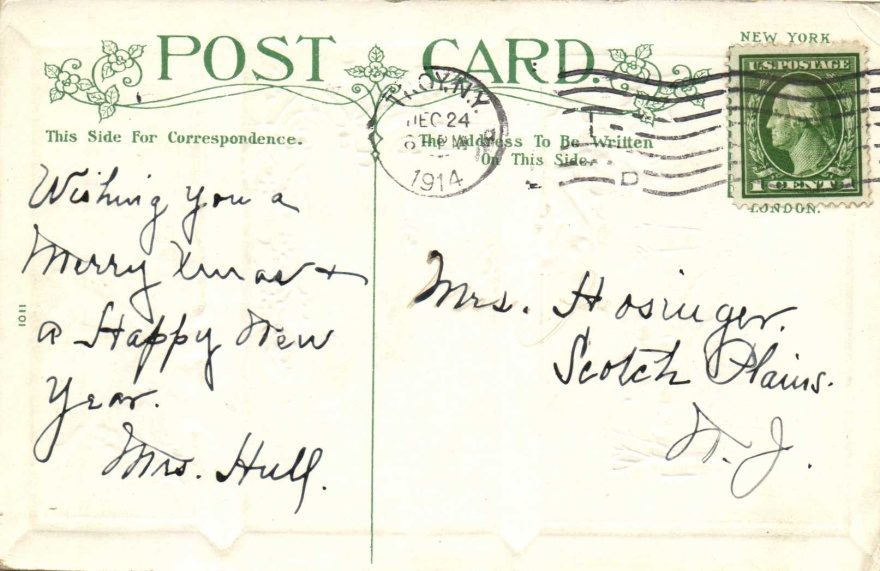 POST CARD.
NEW YORK
U.S. POSTAGE
1 CENT 1
LONDON.
TROY, N.Y.
DEC 24
1914
D
This Side For Correspondence.
The Address To Be Written
On This Side.
Wishing you a
Merry Xmas +
a Happy New
Year.
Mrs. Hull.
1011
Mrs. Hosinger.
Scotch Plains.
N. J.